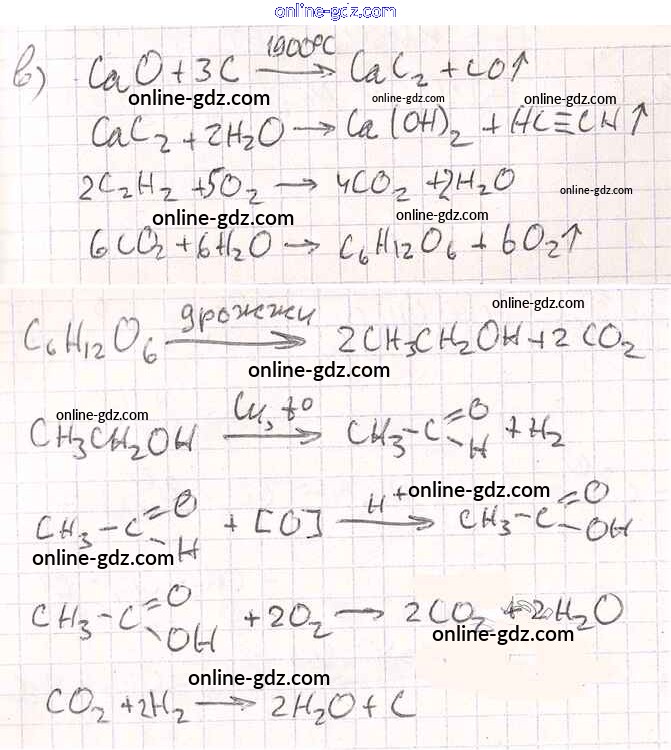 online-gdz.com
в) CaO + 3C 1900°C → CaC₂ + CO↑
online-gdz.com online-gdz.com online-gdz.com
CaC₂ + 2H₂O → Ca(OH)₂ + HC≡CH↑
2C₂H₂ + 5O₂ → 4CO₂ + 2H₂O online-gdz.com
online-gdz.com online-gdz.com
6CO₂ + 6H₂O → C₆H₁₂O₆ + 6O₂↑
online-gdz.com
C₆H₁₂O₆ дрожжи → 2CH₃CH₂OH + 2CO₂
online-gdz.com
online-gdz.com
CH₃CH₂OH Cu, t° → CH₃-C=O-H + H₂
online-gdz.com
CH₃-C=O-H + [O] H⁺ → CH₃-C=O-OH
online-gdz.com
CH₃-C=O-OH + 2O₂ → 2CO₂ + 2H₂O
online-gdz.com
online-gdz.com
CO₂ + 2H₂ → 2H₂O + C